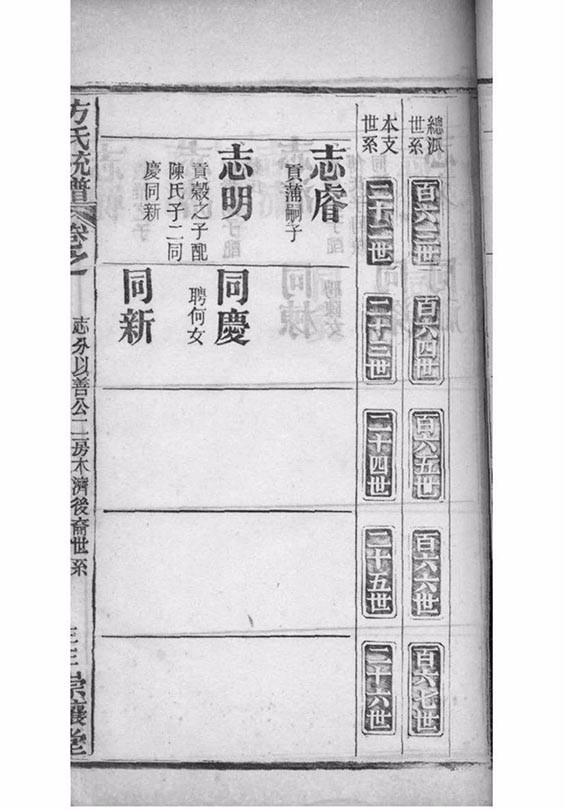 總派世系
百六三世
百六四世
百六五世
百六六世
百六七世
本支世系
二十二世
二十三世
二十四世
二十五世
二十六世
志睿
貢蒲嗣子
志明
貢穀之子配
陳氏子二同
慶同新
同慶
聘何女
同新
方氏統譜
卷之
志分以善公二房木濟後裔世系
崇讓堂